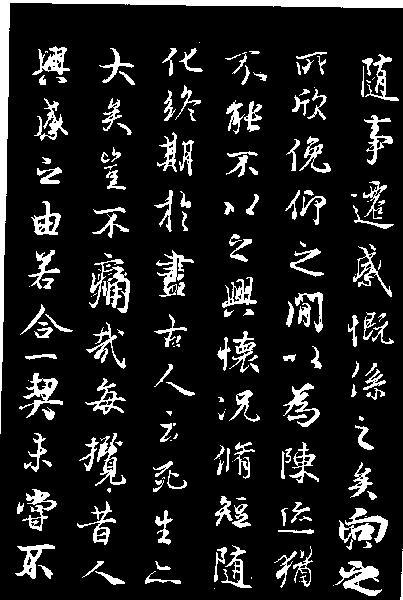 随事遷感慨係之矣向之
所欣俛仰之間以為陳迹猶
不能不以之興懷況脩短随
化終期於盡古人云死生亦
大矣豈不痛哉每攬昔人
興感之由若合一契未嘗不